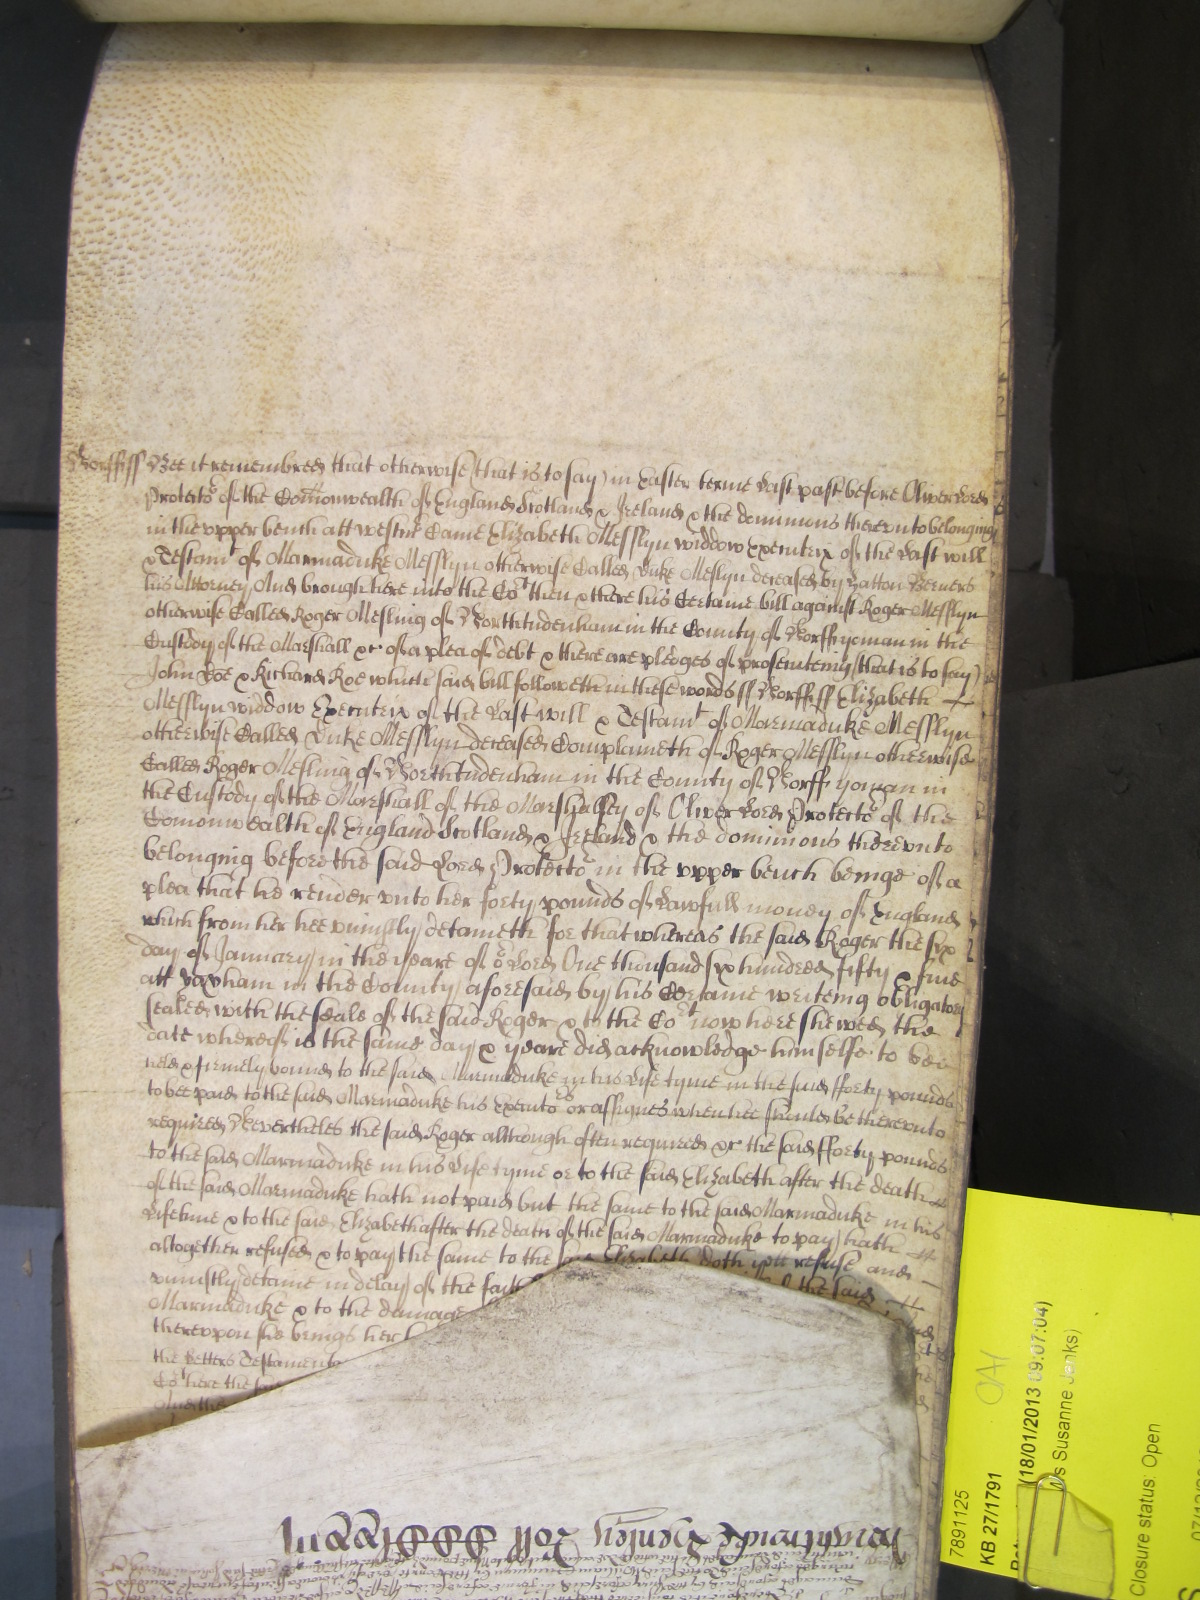 Norff ss Bee it remembred that otherwise (that is to say) in Easter terme Last past before Oliver Lord
Protecto.r of the Com̄onwealth of England Scotland & Ireland & the dominions therevnto belonging
in the vpper bench att westm̄r Came Elizabeth Messlyn widdow Executrix of the Last will
& Testam.t of Marmaduke Messlyn otherwise Called Duke Meslyn deceased by Hatton Berners
his Attorney And brough here into the Co.rt then & there his Certaine bill against Roger Messlyn
otherwise Called Roger Mesling of Northtudenham in the County of Norff yoman in the
Custody of the Marshall &c of a plea of debt & there are pledges of prosecuteing (that is to say)
John Doe & Richard Roe which said bill followeth in these words ss Norff ss Elizabeth
Messlyn widdow Executrix of the Last will & Testam.t of Marmaduke Messlyn
otherwise Called Duke Messlyn deceased Complaineth of Roger Messlyn otherwise
Called Roger Mesling of Northtudenham in the County of Norff yoman in
the Custody of the Marshall of the Marshalsey of Oliver Lord Protecto.r of the
Comonwealth of England Scotland & Ireland & the dominions therevnto
belonging before the said Lord Protecto.r in the vpper bench beinge of a
plea that he render vnto her forty pounds of Lawfull money of England
which from her hee vniustly detaineth for that whereas the said Roger the six
day of January in the yeare of o.r Lord One thousand six hundred fifty & five
att Yaxham in the County aforesaid by his Certaine writeing obligatory
sealed with the seale of the said Roger & to the Co.rt now here shewed the
date whereof is the same day & yeare did acknowledge himselfe to bee
held & firmely bound to the said Marmaduke in his Life tyme in the said fforty pounds
to bee paid to the said Marmaduke his Executo.rs or assignes when hee should be therevnto
required Neverthelesse the said Roger although often required &c the said fforty pounds
to the said Marmaduke in his Life tyme or to the said Elizabeth after the death
of the said Marmaduke hath not paid but the same to the said Marmaduke in his
Lifetime & to the said Elizabeth after the death of the said Marmaduke to pay hath
altogether refused & to pay the same to the said Elizabeth doth yett refuse and
vniustly detaine in delay of the faith the said
Marmaduke & to the damage
therevpon she brings her
the Letters Testamento
Co.rt here the said
And the
Roll
7891125
KB 27/1791
(18/01/2013 09:07:04)
s Susanne Jenks)
Closure status: Open